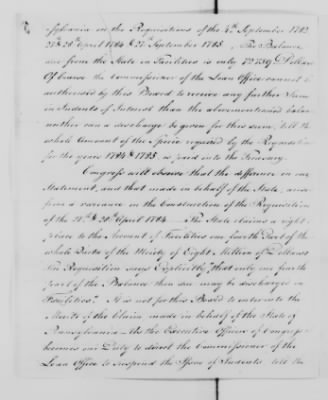 sylvania on the Requisitions of the 4th September 1782
27th & 28th April 1784 & 27th September 1785. The Balance
due from the State in Facilities is only Dollars
Of Course the Commissioner of the Loan Office cannot be
authorised by this Board to receive any further Sum
in Indents of Interest than the abovementioned balance
neither can a discharge be given for this sum, till the
whole Amount of the Specie required by the Requisitions
for the years 1784 & 1785 is paid into the Treasury.
Congress will observe that the difference in our
Statement, and that made in behalf of the State, arises
from a variance in the Construction of the Requisition
of the 27th & 28th April 1784. The State claims a right
place to the Account of Facilities one fourth Part of the
whole Quota of the Moiety of Eight Million of Dollars
The Requisition says Explicitly "that only one fourth
part of the Balance then due may be discharged in
Facilities". It is not for this Board to enter into the
Merits of the Claim made in behalf of the State of
Pennsylvania. As the Executive Officers of Congress
becomes our Duty to direct the Commissioner of the
Loan Office to suspend the Issue of Indents till the